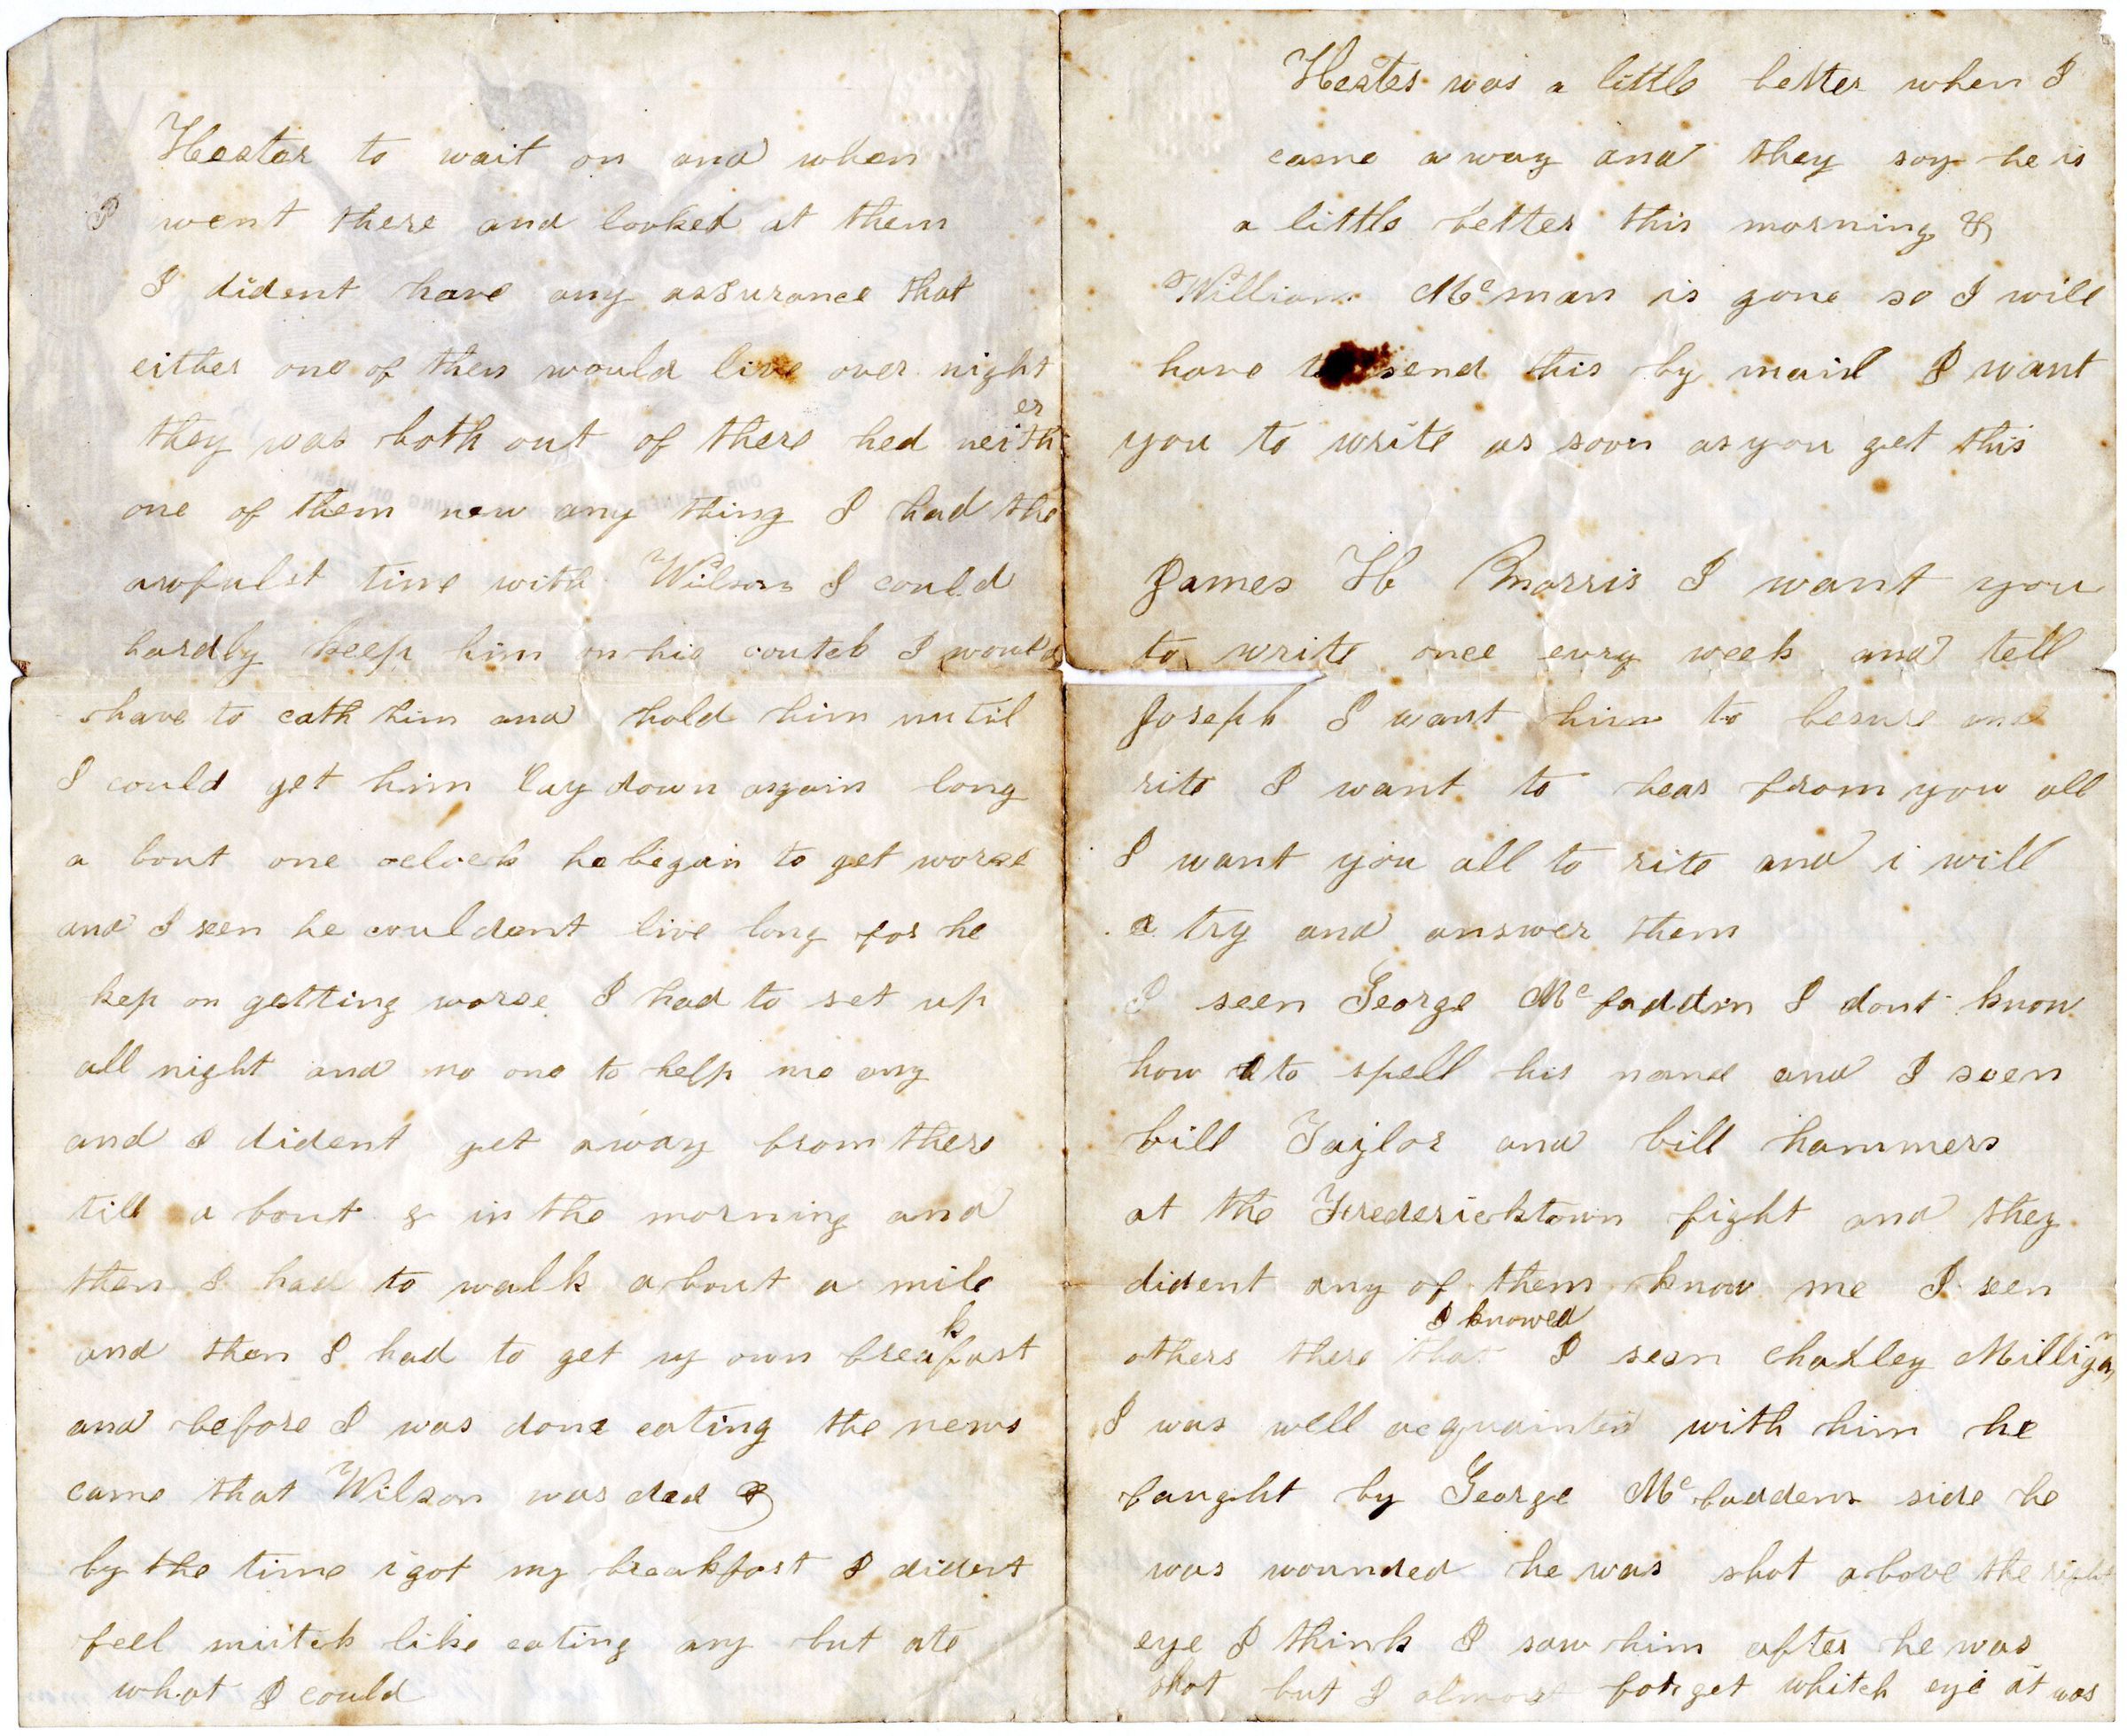 Hester to wait on and when
I went there and looked at them
I dident have any assurance that
either one of then would live over night
they was both out of there hed neither
one of them new any thing I had the
awfulst time with Wilson I could
hardly keep him on his coutch I would
have to cath him and hold him until
I could get him lay down again long
a bout one oclock he began to get worse
and I seen he couldent live long for he
kep on getting worse I had to set up
all night and no one to help me any
and I dident get away from there
till a bout 8 in the morning and
then I had to walk a bout a mile
and then I had to get my own breakfast
and before I was done eating the news
came that Wilson was ded &
by the time i got my breakfast I dident
feel mutch like eating any but ate
what I could
Hester was a little better when I
came a way and they say he is
a little better this morning &
William Mcman is gone so I will
have to send this by mail I want
you to write as soon as you get this
James H Morris I want you
to write once evry week and tell
Joseph I want him to besure and
rite I want to hear from you all
I want you all to rite and i will
a try and answer them
I seen George Mc faddin I dont know
how to spell his name and I seen
bill Taylor and bill hammers
at the Fredericktown fight and they
dident any of them know me I seen
others there that I knowed I seen Charley Milligan
I was well acquainted with him he
faught by George Mc faddens side he
was wounded he was shot above the right
eye I think I saw him after he was
shot but I almost forget whitch eye it was
OUR BANNER ON HIGH